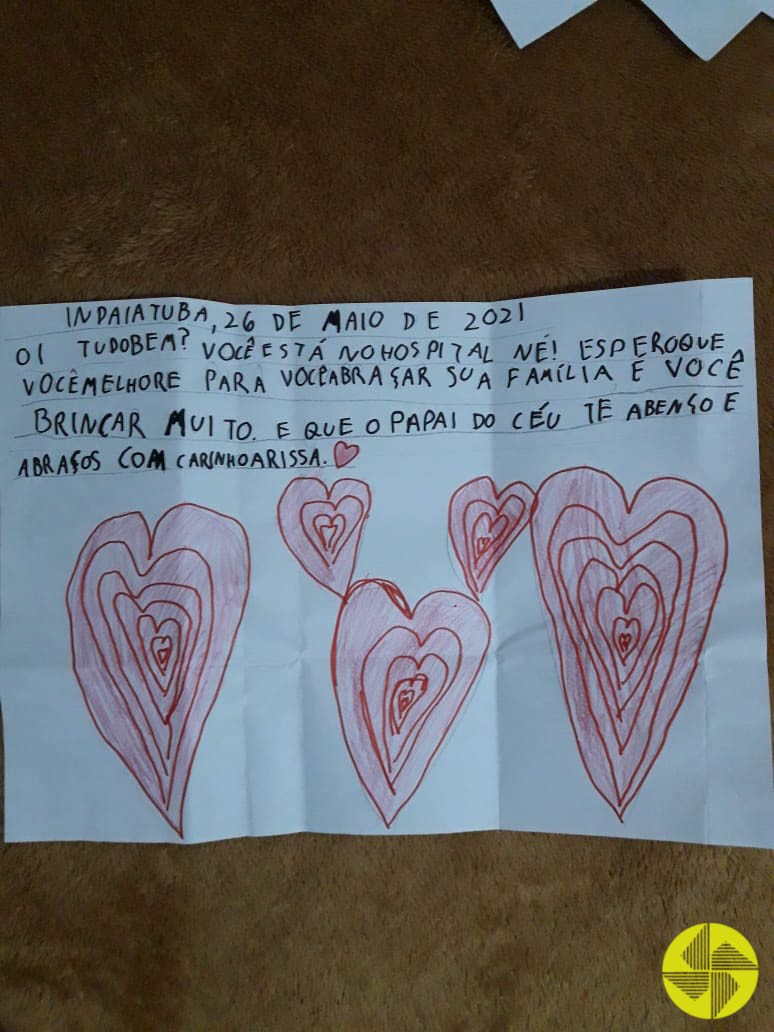 INDAIATUBA, 26 DE MAIO DE 2021
OI TUDOBEM? VOCÊ ESTÁ NO HOSPITAL NÉ! ESPEROQUE
VOCÊMELHORE PARA VOCÊABRAÇAR SUA FAMÍLIA E VOCÊ
BRINCAR MUITO. E QUE O PAPAI DO CÉU TE ABENÇOE
ABRAÇOS COM CARINHOARISSA.